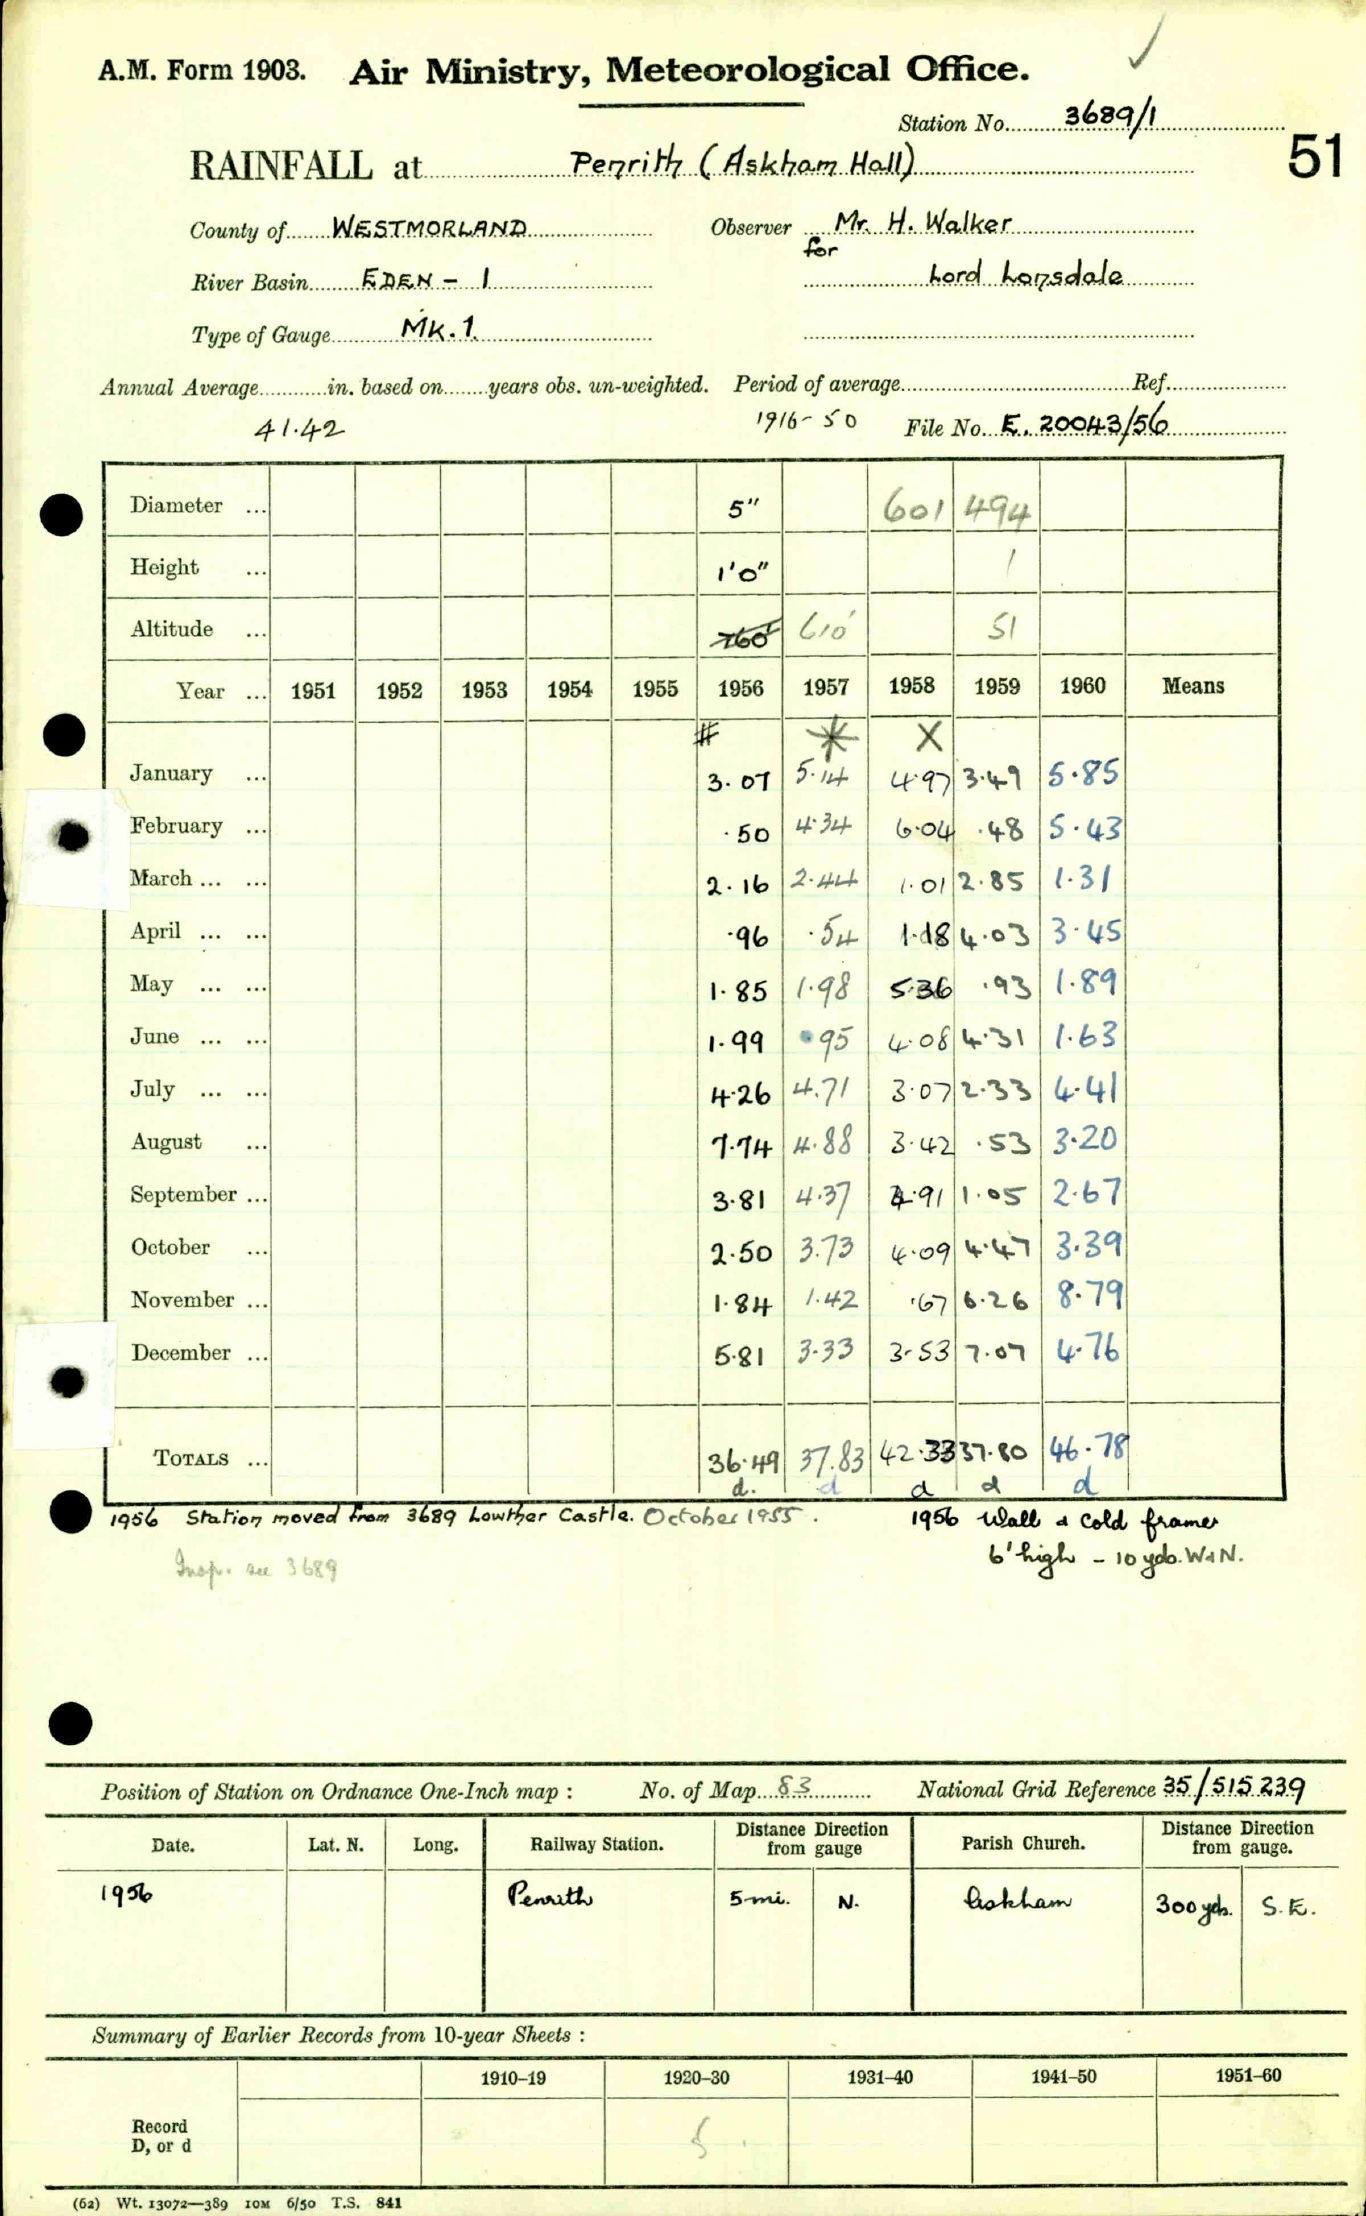 A.M. Form 1903. Air Ministry, Meteorological Office.
Station No. 3689/1
51
RAINFALL at Penrith (Askham Hall)
County of WESTMORLAND Observer Mr. H. Walker
for
River Basin EDEN - 1 Lord Lonsdale
Type of Gauge Mk.1.
Annual Average in. based on years obs. un-weighted. Period of average Ref.
41.42 1916-50 File No. E. 20043/56
Diameter ... 5" 601 494
Height ... 1'0" 1
Altitude ... 760' 610' 51
Year ... 1951 1952 1953 1954 1955 1956 1957 1958 1959 1960 Means
# * X
January ... 3.07 5.14 4.97 3.49 5.85
February ... .50 4.34 6.04 .48 5.43
March ... ... 2.16 2.44 1.01 2.85 1.31
April ... ... .96 .54 1.18 4.03 3.45
May ... ... 1.85 1.98 5.36 .93 1.89
June ... ... 1.99 .95 4.08 4.31 1.63
July ... ... 4.26 4.71 3.07 2.33 4.41
August ... 7.74 4.88 3.42 .53 3.20
September ... 3.81 4.37 4.91 1.05 2.67
October ... 2.50 3.73 4.09 4.47 3.39
November ... 1.84 1.42 .67 6.26 8.79
December ... 5.81 3.33 3.53 7.07 4.76
TOTALS ... 36.49 37.83 42.33 37.80 46.78
d. d d d d
1956 Station moved from 3689 Lowther Castle. October 1955. 1956 Wall & cold frames
6' high - 10 yds. W & N.
Insp. see 3689
Position of Station on Ordnance One-Inch map : No. of Map 83 National Grid Reference 35/515239
Date. Lat. N. Long. Railway Station. Distance Direction from gauge Parish Church. Distance Direction from gauge.
1956 Penrith 5 mi. N. Askham 300 yds. S.E.
Summary of Earlier Records from 10-year Sheets :
1910–19 1920–30 1931–40 1941–50 1951–60
Record
D, or d
(62) Wt. 13072—389 10M 6/50 T.S. 841